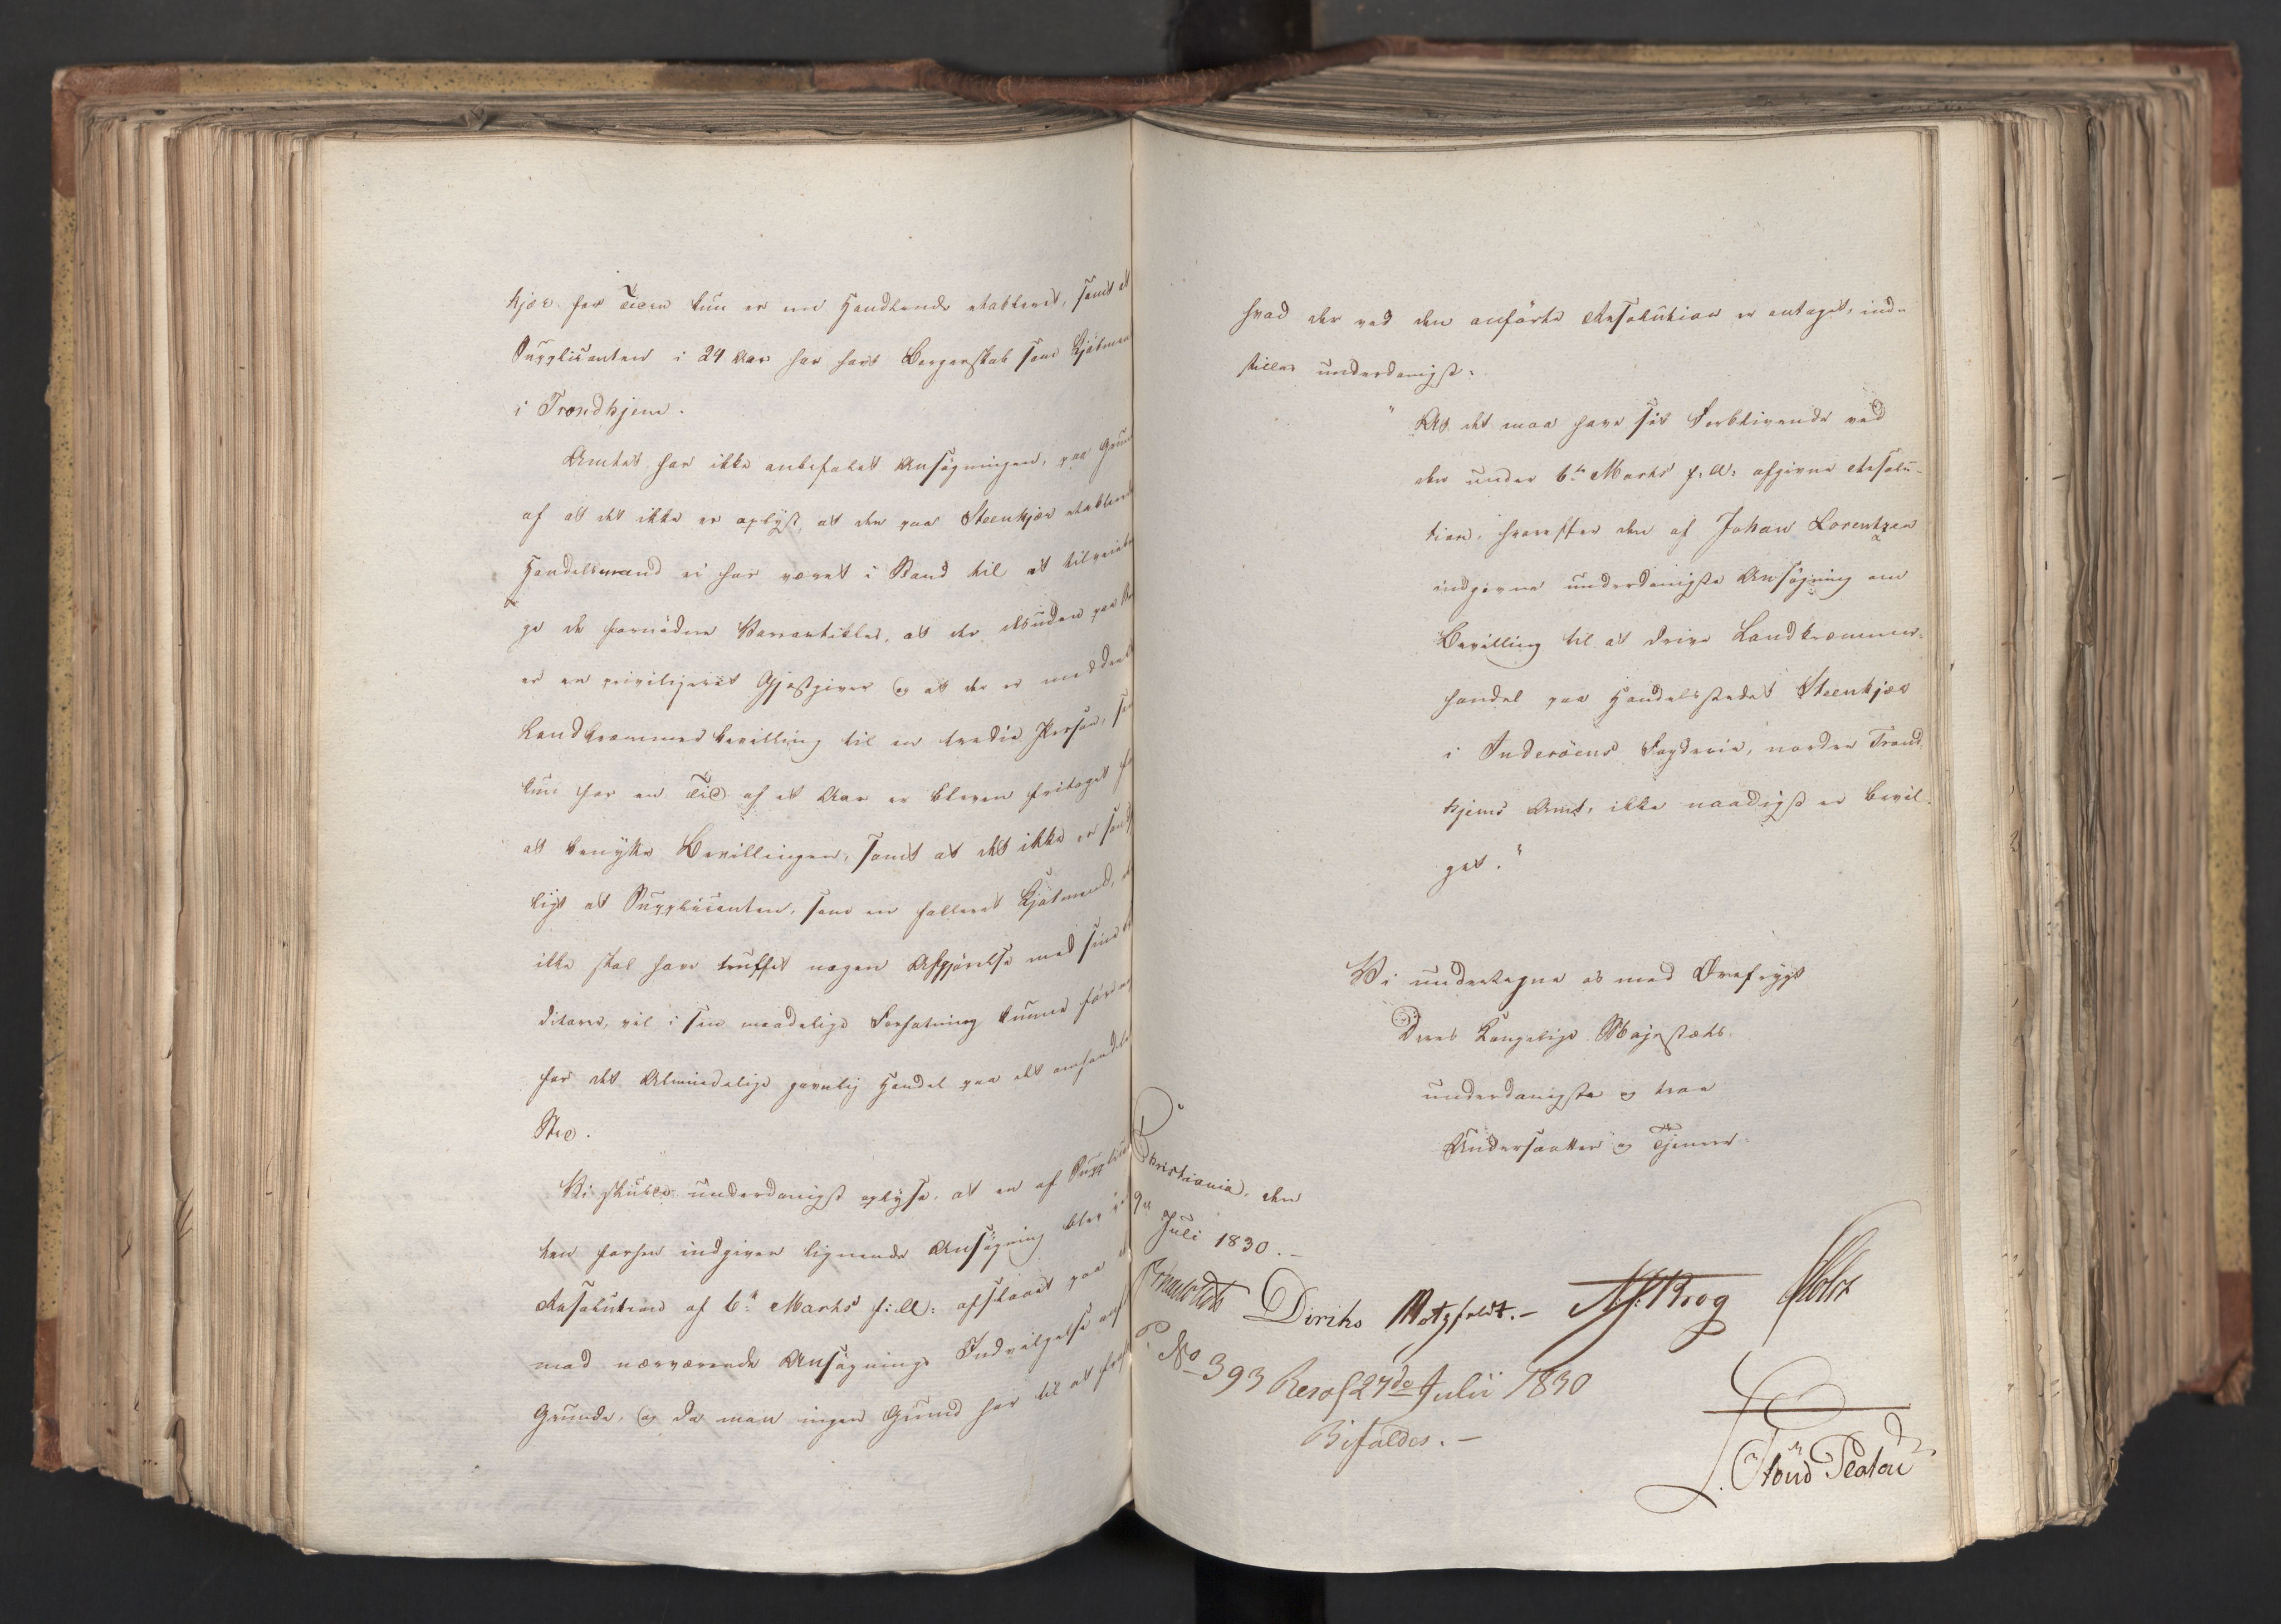 kjær for Tiden kun er een Handlende etableret, samt at
Supplicanten i 24 Aar har havt Borgerskab som Kjøbmand
i Trondhjem.
Amtet har ikke anbefalet Ansøgningen, paa Grund
af at det ikke er oplyst, at den paa Steenkjær etablerede
Handelsmand ei har været i Stand til at tilveiebrin-
ge de fornødne Vareartikler, at der desuden paa
er en priviligeret Gjestgiver og at der er meddeelt
Landkræmmerbevilling til en tredie Person, som
kun for en Tid af et Aar er bleven fritaget for
at benytte Bevillingen, samt at det ikke er
ligt at Supplicanten, som en falleret Kjøbmand, der
ikke skal have truffet nogen Afgjørelse med sine Cre-
ditorer, vil i sin maadelige Forfatning kunne føre en
for det Almindelige gavnlig Handel paa det omhandlede
Sted.
Vi skulle underdanigst oplyse, at en af Supplican-
ten forhen indgiven lignende Ansøgning blev ved
Resolution af 6te Marts f: A: afslaaet paa de
mod nærværende Ansøgnings Indvilgelse anførte
Grunde, og da man ingen Grund har til at
hvad der ved den anførte Resolution er antaget, ind-
stilles underdanigst:
"At det maa have sit Forblivende ved
den under 6te Marts f: A: afgivne Resolu-
tion, hvorefter den af Johan Lorentzen
indgivne underdanigste Ansøgning om
Bevilling til at drive Landkræmmer-
handel paa Handelsstedet Steenkjær
i Inderøens Fogderie, norder Trond-
hjems Amt, ikke naadigst er bevil-
get."
Vi undertegne os med Ærefrygt
Deres Kongelige Majestæts
underdanigste og troe
Undersaatter og Tjenere
Christiania, den
9de Juli 1830.-
Diriks Motzfeldt.- Krog Holst
P. No 393 Resol 27de Julii 1830
Bifaldes.-
Stoud Platou